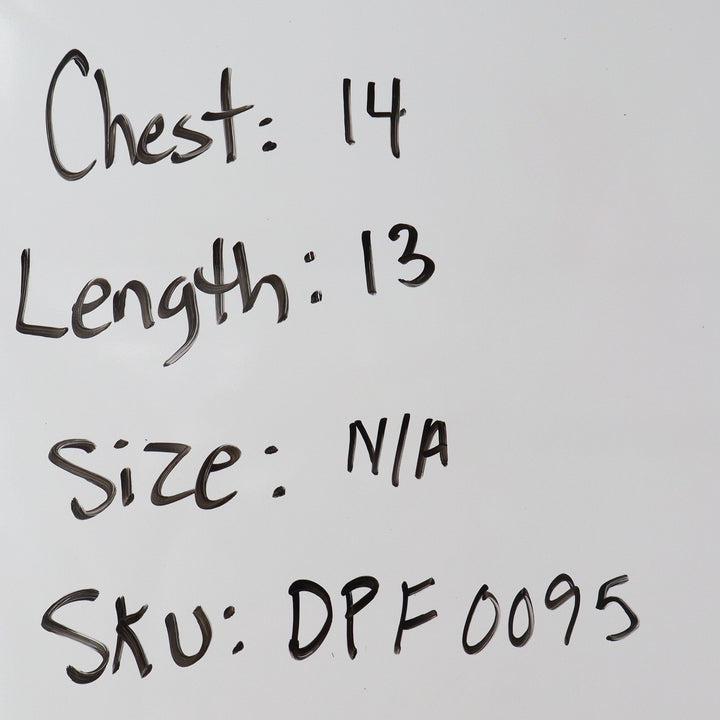 Chest: 14
Length: 13
Size: N/A
SKU: DPF0095